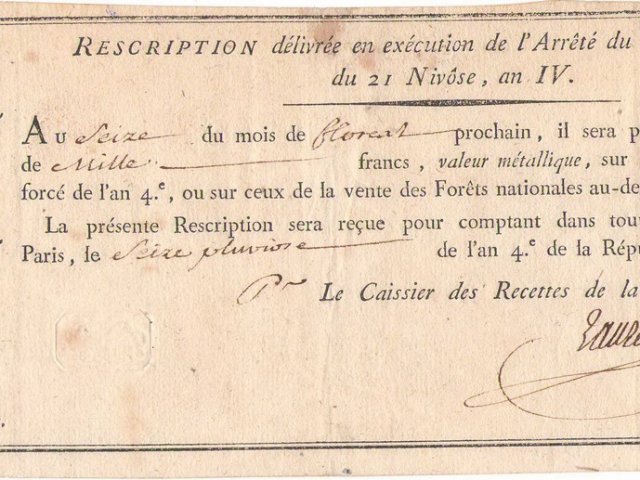 RESCRIPTION délivrée en exécution de l'Arrêté du
du 21 Nivôse, an IV.
AU Seize du mois de floreal prochain, il sera p
de Mille francs, valeur métallique, sur
forcé de l'an 4.e, ou sur ceux de la vente des Forêts nationales au-de
La présente Rescription sera reçue pour comptant dans tou
Paris, le Seize pluviose de l'an 4.e de la Répu
Pr Le Caissier des Recettes de la